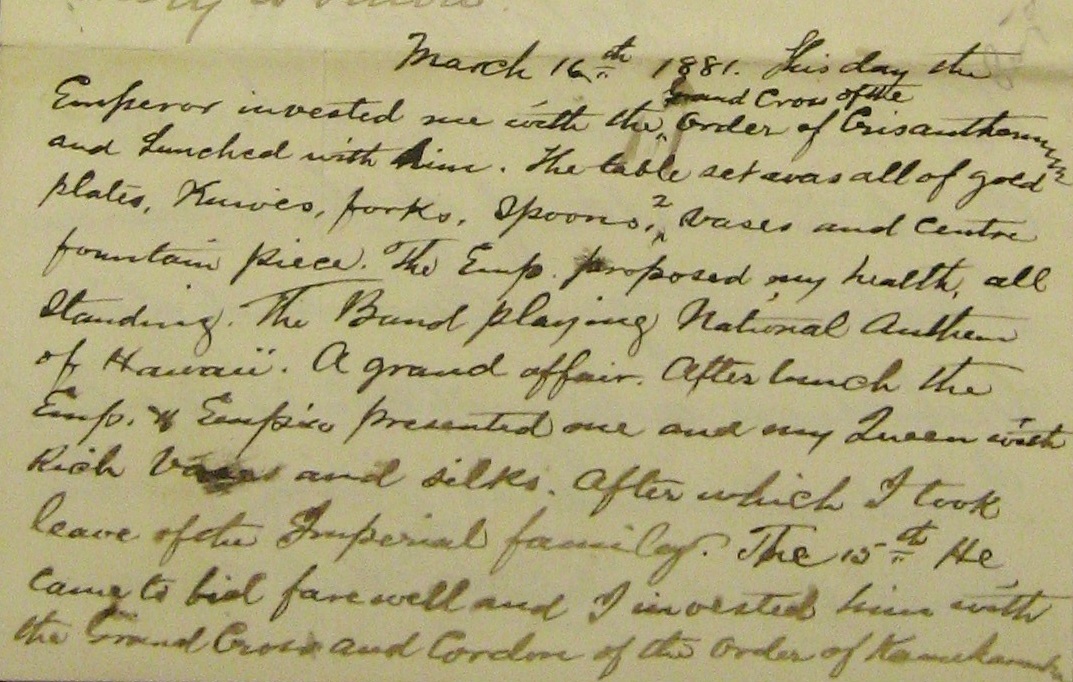 March 16th 1881. This day the
Grand Cross of the
Emperor invested me with the Order of Crisanthemum
and Lunched with him. The table set was all of gold
plates, Knives, forks, Spoons, 2 vases and Centre
fountain piece. The Emp. proposed my health, all
Standing. The Band playing National Anthem
of Hawaii. A grand affair. After lunch the
Emp. & Empires presented me and my Queen with
Rich Vases and silks. After which I took
leave of the Imperial family. The 15th He
Came to bid farewell and I invested him with
the Grand Cross and Cordon of the Order of Kamehameha